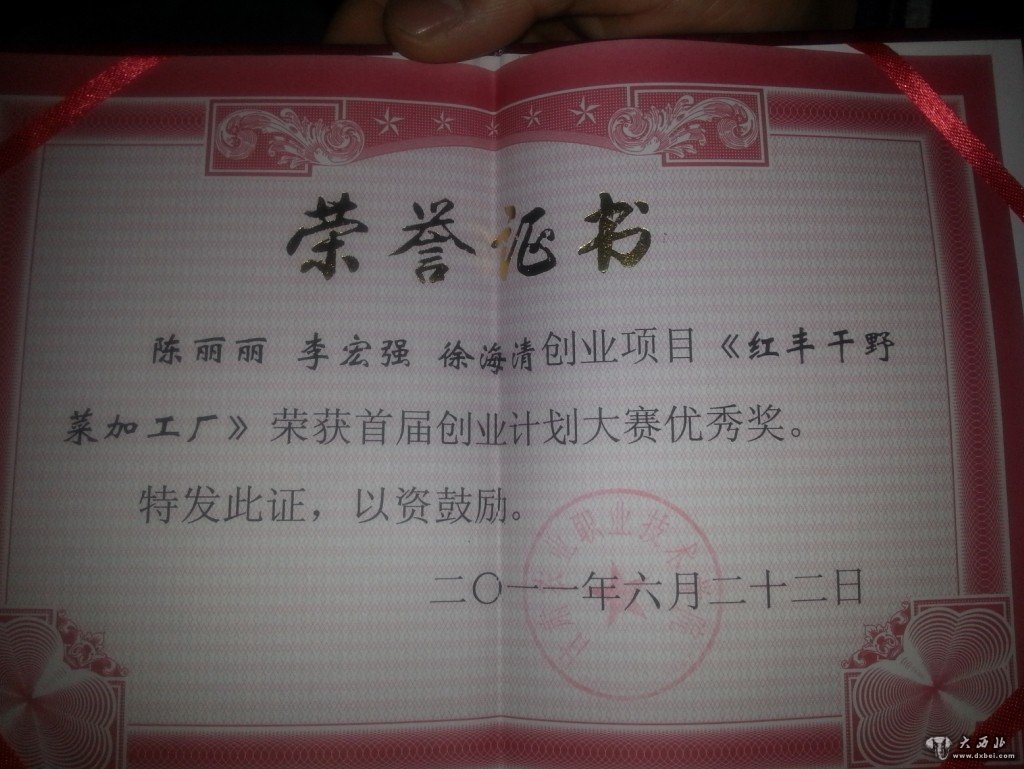 荣誉证书
陈丽丽 李宏强 徐海清创业项目《红丰干野
菜加工厂》荣获首届创业计划大赛优秀奖。
特发此证，以资鼓励。
二〇一一年六月二十二日
职业技术
大西北
www.dxbei.com